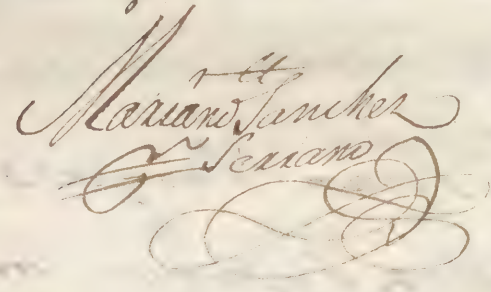 Mariano Sanchez
Serrano